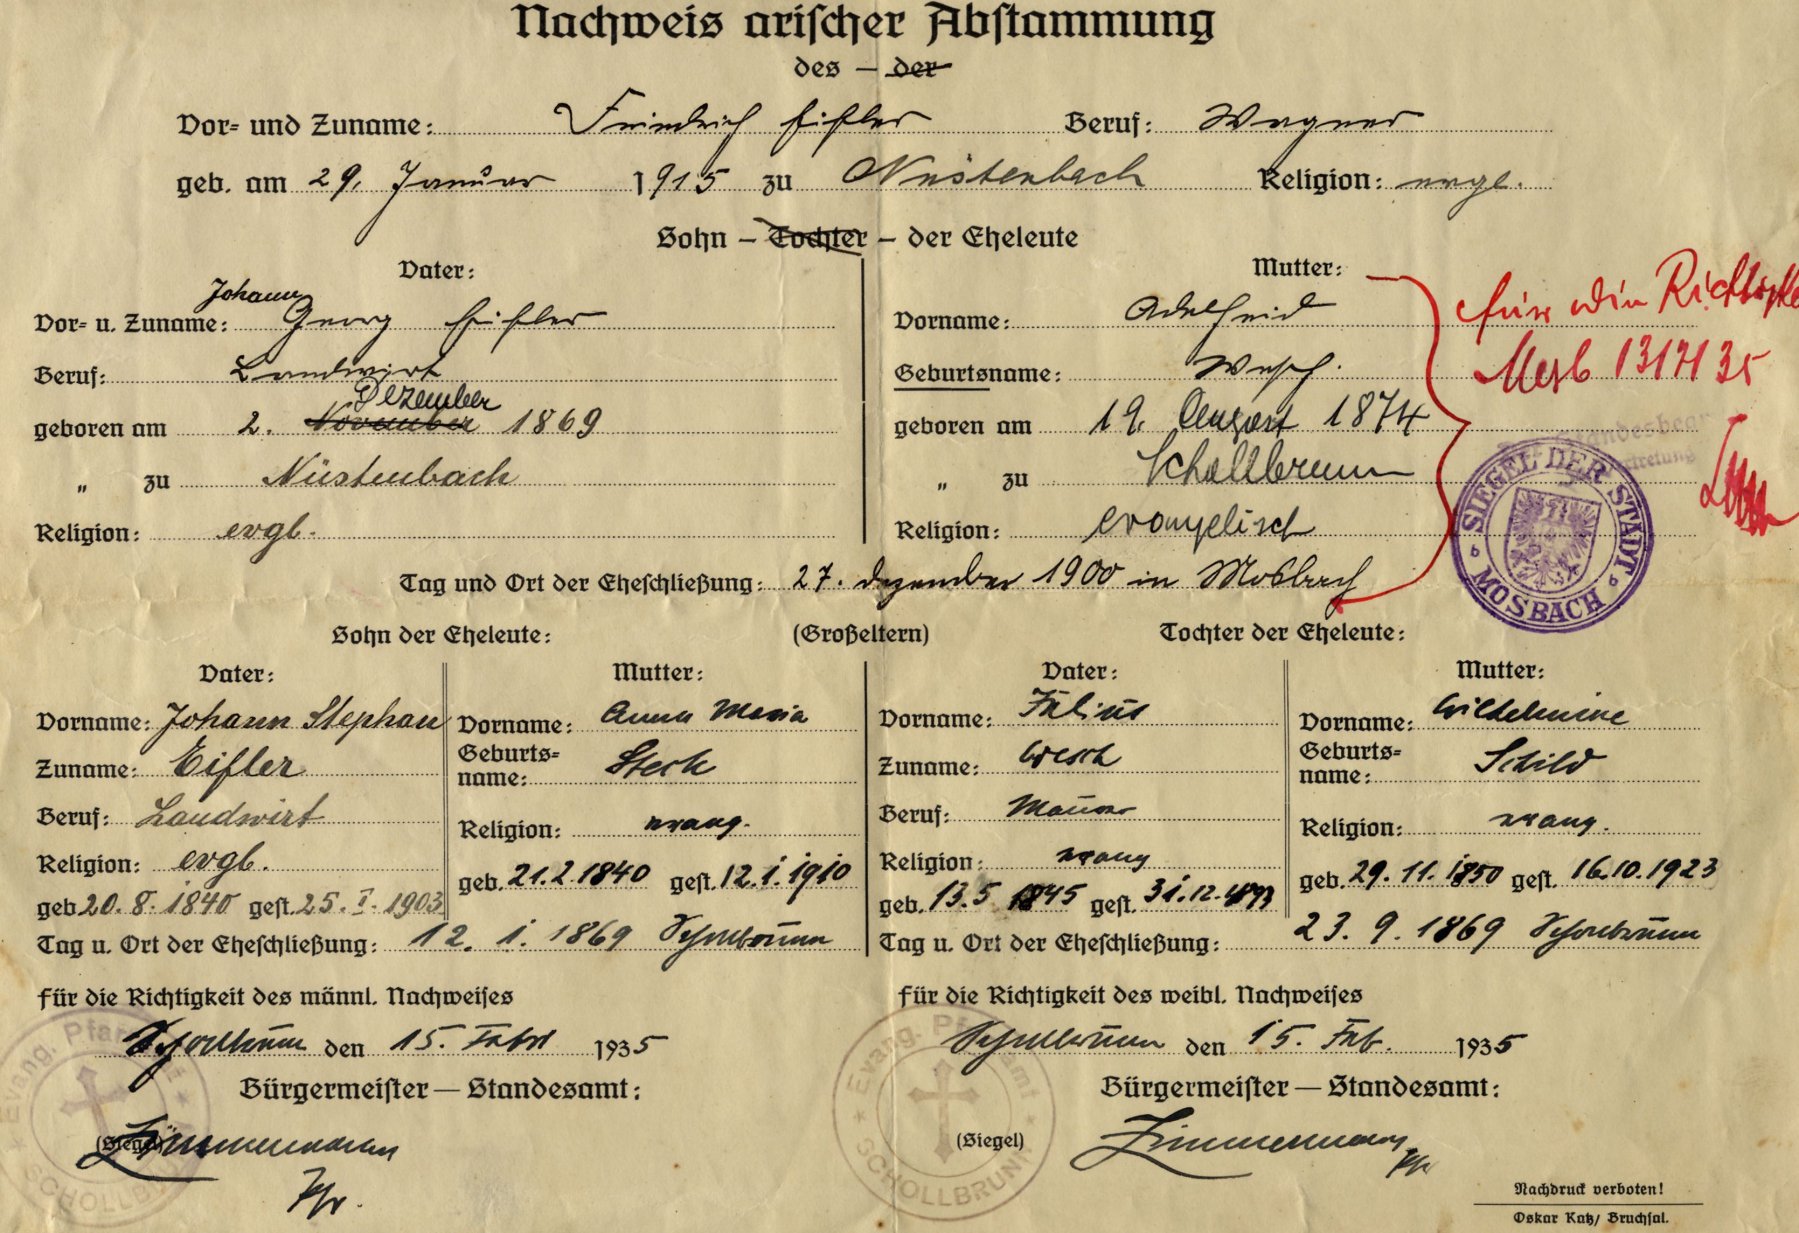 Nachweis arischer Abstammung
des — der
Vor- und Zuname: Friedrich Eifler Beruf: Wagner
geb. am 29. Januar 1915 zu Nüstenbach Religion: evgl.
Sohn — Tochter — der Eheleute
Vater:
Johann
Vor- u. Zuname: Georg Eifler
Beruf: Landwirt
Dezember
geboren am 2. November 1869
„ zu Nüstenbach
Religion: evgl.
Mutter:
Vorname: Adelheid
Geburtsname: Wesch.
geboren am 19. August 1874
„ zu Schollbrunn
Religion: evangelisch
für die
Mosb
35
SIEGEL DER STADT MOSBACH
Tag und Ort der Eheschließung: 27. Dezember 1900 in Mosbach
Sohn der Eheleute: (Großeltern) Tochter der Eheleute:
Vater:
Vorname: Johann Stephan
Zuname: Eifler
Beruf: Landwirt
Religion: evgl.
geb. 20. 8. 1840 gest. 25. I. 1903
Mutter:
Vorname: Anna Maria
Geburts-
name: Steck
Religion: evang.
geb. 21. 2. 1840 gest. 12. 1. 1910
Tag u. Ort der Eheschließung: 12. 1. 1869 Schollbrunn
Vater:
Vorname: Julius
Zuname: Wesch
Beruf: Maurer
Religion: evang
geb. 13. 5 1845 gest. 31. 12.
Mutter:
Vorname: Wilhelmine
Geburts-
name: Schild
Religion: evang.
geb. 29. 11. 1850 gest. 16. 10. 1923
Tag u. Ort der Eheschließung: 23. 9. 1869 Schollbrunn
für die Richtigkeit des männl. Nachweises
Schollbrunn den 15. Febr 1935
Bürgermeister — Standesamt:
(Siegel) Zimmermann
Pfr.
Evang. Pfarramt SCHOLLBRUNN
für die Richtigkeit des weibl. Nachweises
Schollbrunn den 15. Feb. 1935
Bürgermeister — Standesamt:
(Siegel) Zimmermann
Pfr
Evang. Pfarramt SCHOLLBRUNN
Nachdruck verboten!
Oskar Katz/ Bruchsal.